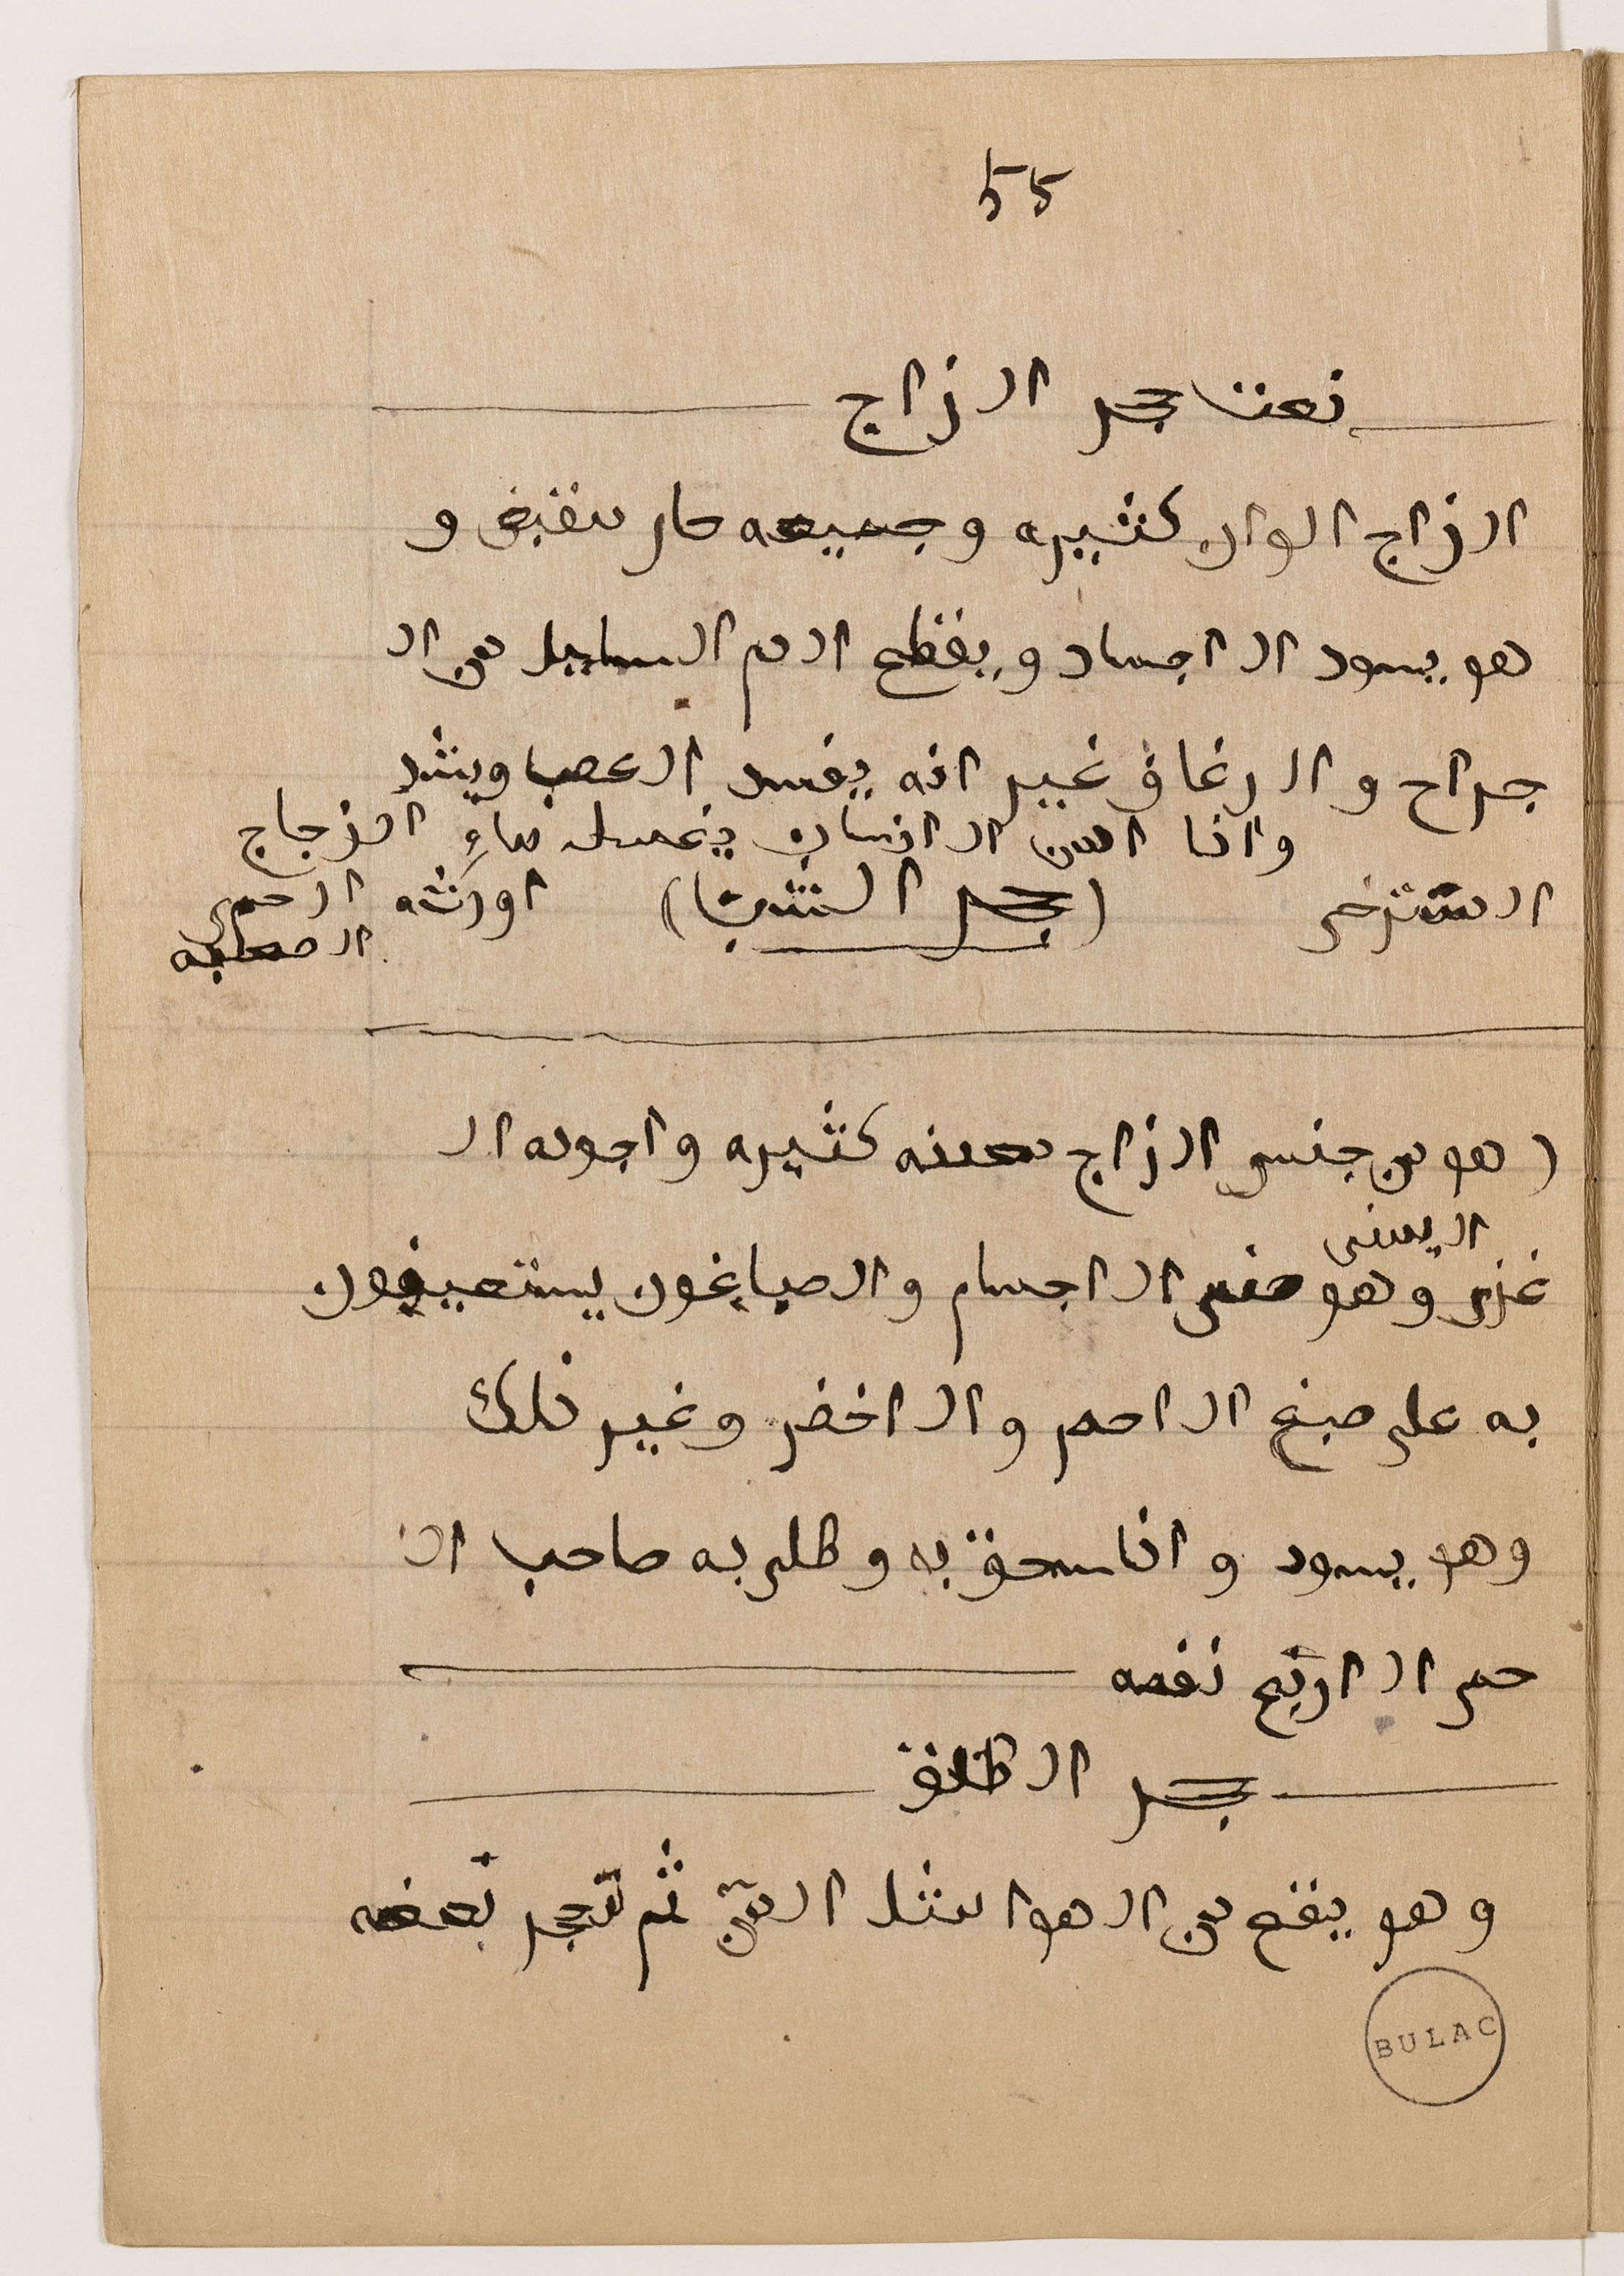 55
نعت حجر الزاج
الزاج الوان كثيره وجميعه حار مقبض و
هو يسود الاجساد ويقطع الدم السايل من ال
جراح والرعاف غير انه يفسد العصب ويشد
واذا ادمن الانسان يغسل بماءِ الزجاج
المسترخى (حجر الشب) اورثه الحمى
الصعبه
(هو من جنس الزاج كثيره واجوده ال
اليمنى
وهو الاجسام والصباغون يستعينون
به على صبغ الاحمر والاخضر وغير ذلك
وهو يسود واذا سحق به وطلى به صاحب ال
حمى الاربع نفعه
حجر الطلق
وهو يقع من الهوا مثل المن ثم تحجر بعضه
BULAC